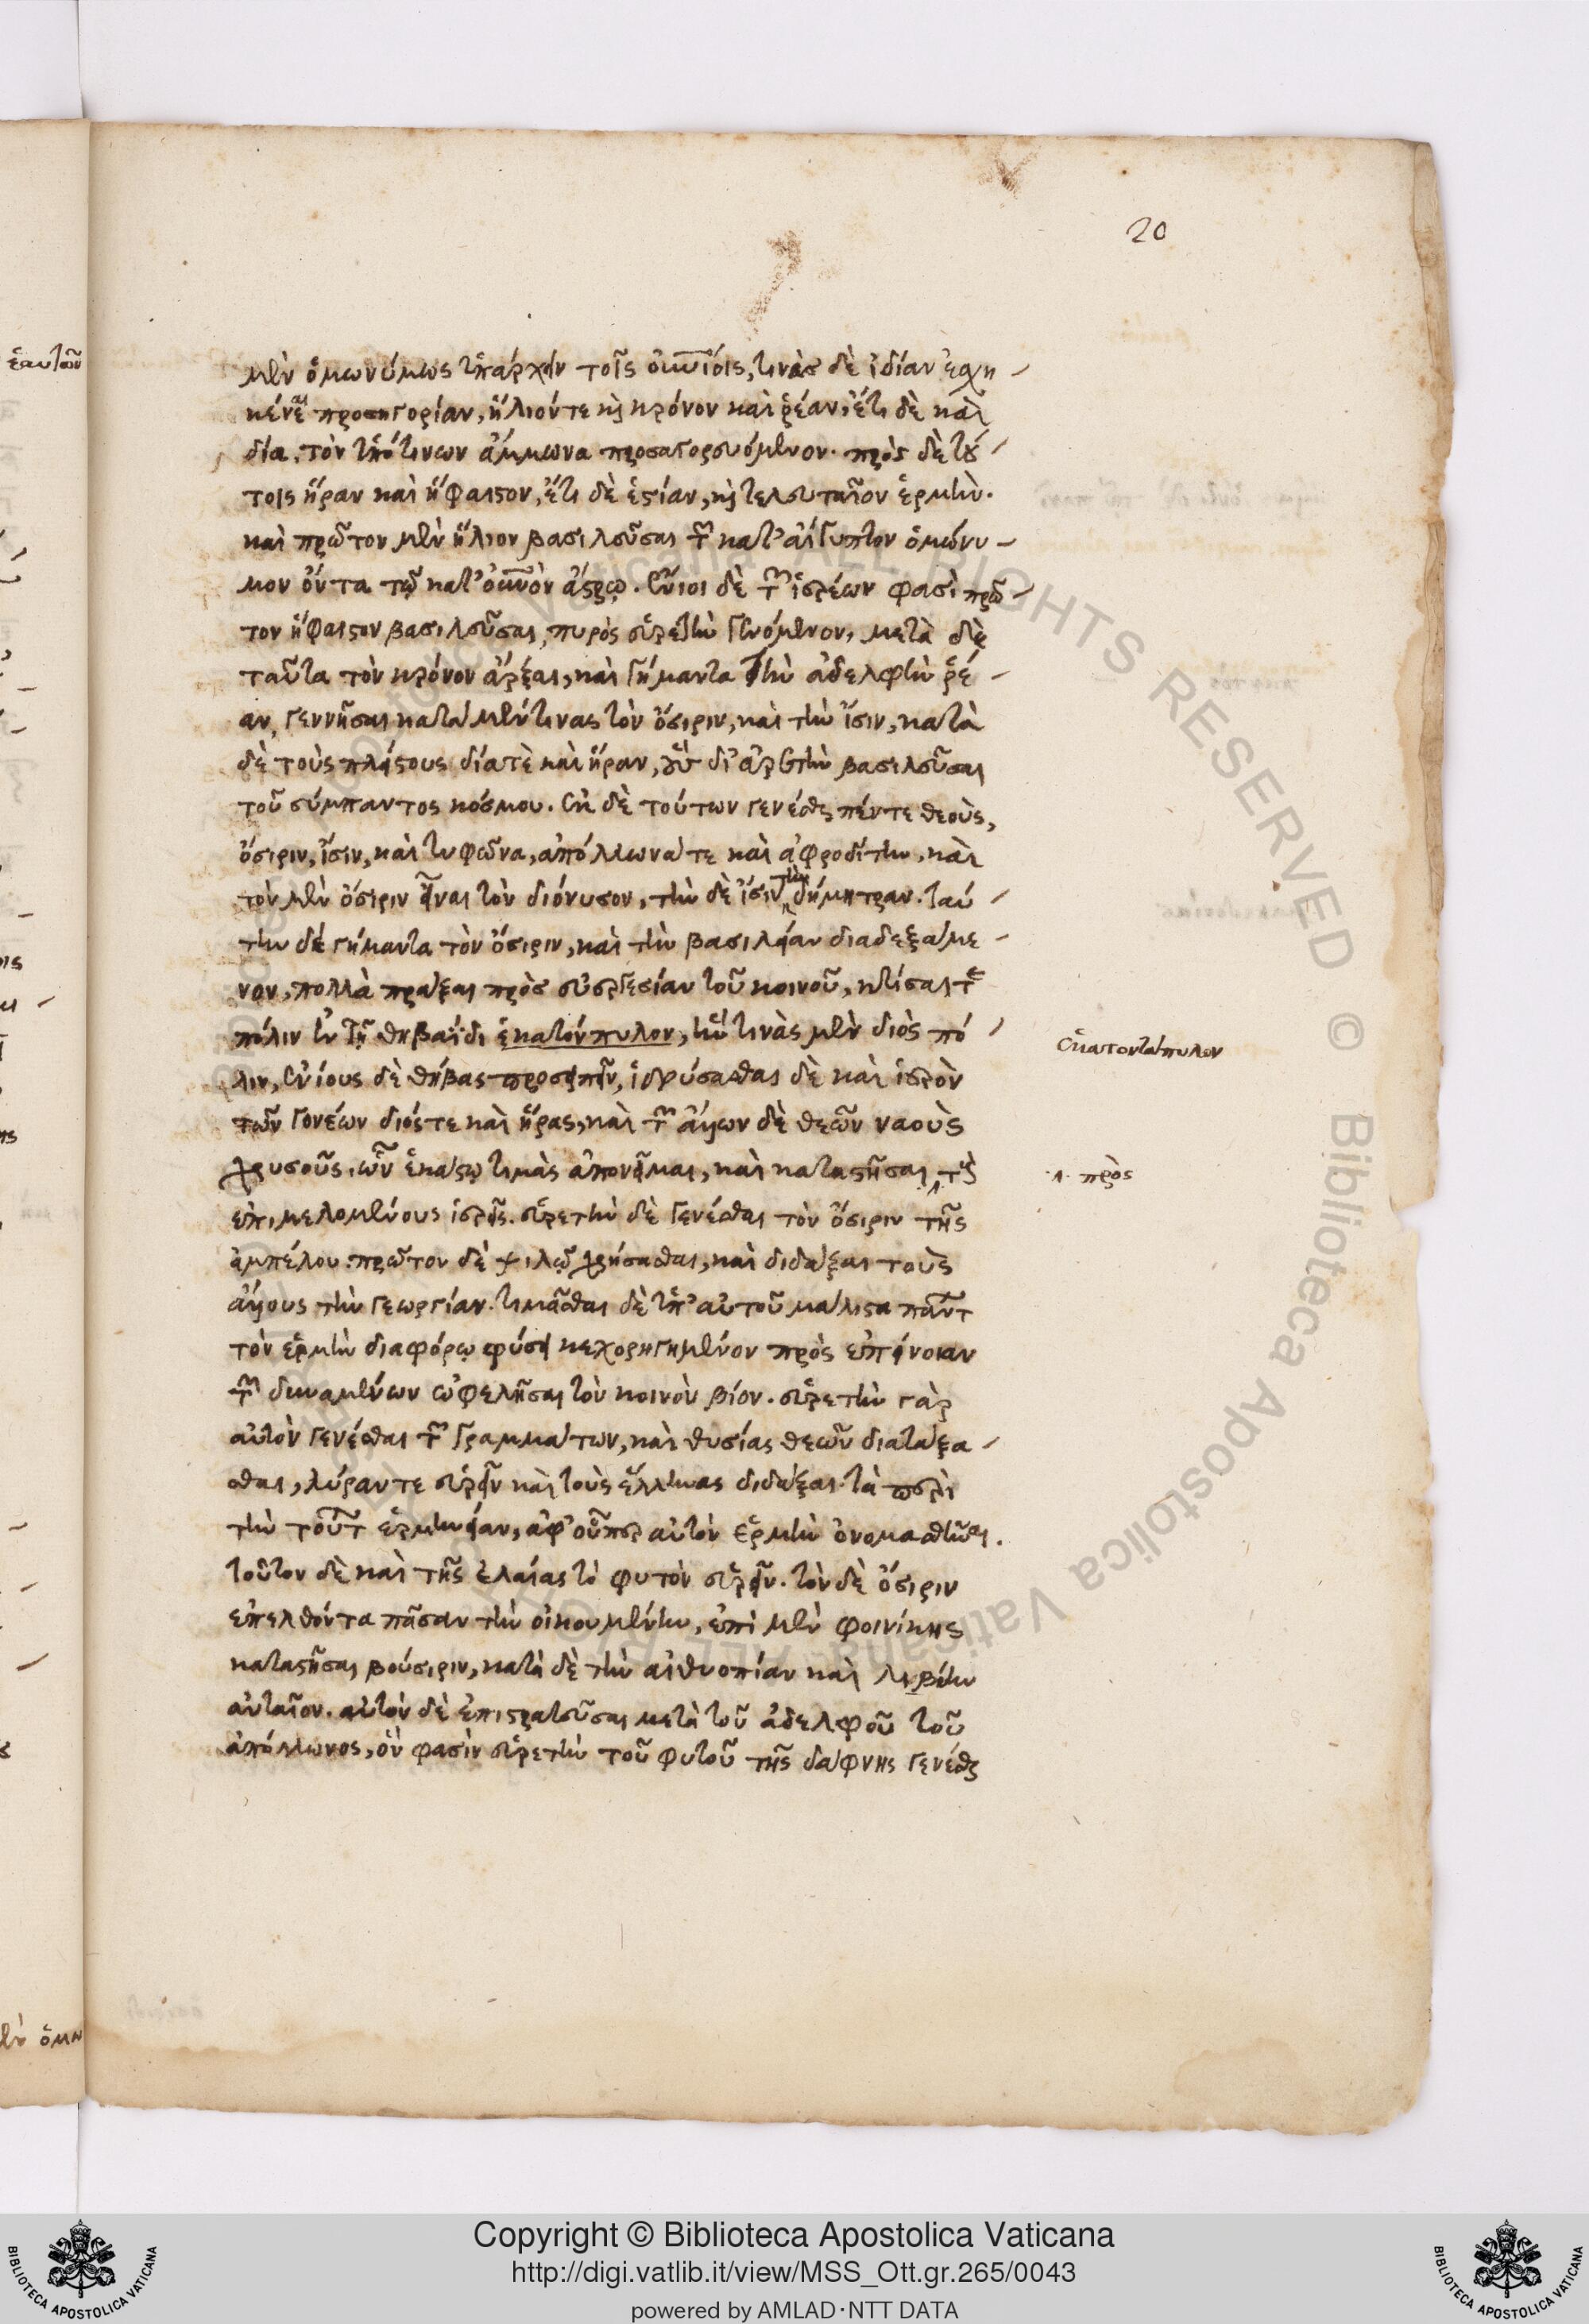 20
ἑαυτῶν
μὲν ὁμωνύμως ὑπάρχειν τοῖς οὐνίοις, τινὰς δὲ ἰδίαν ἐσχη
κέναι προσηγορίαν, ἥλιόν τε κὶ κρόνον καὶ ῥέαν, ἔτι δὲ καὶ
δία, τὸν ὑπό τινων ἄμμωνα προσαγορευόμενον. πρὸς δὲ τού
τοις ἥραν καὶ ἥφαιστον, ἔτι δὲ ἑστίαν, κὶ τελευταῖον ἑρμὴν.
καὶ πρῶτον μὲν ἥλιον βασιλεῦσαι τῶν κατ' αἴγυπτον ὁμώνυ
μον ὄντα τῷ κατ' οὐνὸν ἄστρῳ. ἔνιοι δὲ τῶν ἱερέων φασὶ πρῶ
τον ἥφαιστον βασιλεῦσαι, πυρὸς εὑρετὴν γενόμενον, μετὰ δὲ
ταῦτα τὸν κρόνον ἄρξαι, καὶ γήμαντα τὴν ἀδελφὴν ῥέ
αν, γεννῆσαι κατὰ μέν τινας τὸν ὄσιριν, καὶ τὴν ἴσιν, κατὰ
δὲ τοὺς πλείστους δία τὲ καὶ ἥραν, οὓς δι' ἀρετὴν βασιλεῦσαι
τοῦ σύμπαντος κόσμου. ἐκ δὲ τούτων γενέσθαι πέντε θεοὺς,
ὄσιριν, ἴσιν, καὶ τυφῶνα, ἀπόλλωνά τε καὶ ἀφροδίτην, καὶ
τὸν μὲν ὄσιριν εἶναι τὸν διόνυσον, τὴν δὲ ἴσιν τὴν δήμητραν. ταύ
την δὲ γήμαντα τὸν ὄσιριν, καὶ τὴν βασιλείαν διαδεξάμε
νον, πολλὰ πράξαι πρὸς εὐεργεσίαν τοῦ κοινοῦ, κτίσαι τὲ
πόλιν ἐν τῇ θηβαΐδι ἑκατόνπυλον, ἣν τινὰς μὲν διὸς πό
λιν, ἐνίους δὲ θήβας προσειπεῖν, ἱδρύσασθαι δὲ καὶ ἱερὸν
τῶν γονέων διός τε καὶ ἥρας, καὶ τῶν ἄλλων δὲ θεῶν ναοὺς
χρυσοῦς, ὧν ἑκάστῳ τιμὰς ἀπονεῖμαι, καὶ καταστῆσαι τοὺς
ἐπιμελομένους ἱερεῖς. εὑρετὴν δὲ γενέσθαι τὸν ὄσιριν τῆς
ἀμπέλου. πρῶτον δὲ ψιλῷ χρήσασθαι, καὶ διδάξαι τοὺς
ἄλλους τὴν γεωργίαν. τιμᾶσθαι δὲ ὑπ' αὐτοῦ μάλιστα πάντων
τὸν ἑρμὴν διαφόρῳ φύσει κεχορηγημένον πρὸς ἐπίνοιαν
τῶν δυναμένων ὠφελῆσαι τὸν κοινὸν βίον. εὑρετὴν γὰρ
αὐτὸν γενέσθαι τῶν γραμμάτων, καὶ θυσίας θεῶν διατάξα
σθαι, λύραν τε εὑρεῖν καὶ τοὺς ἕλληνας διδάξαι τὰ περὶ
τὴν τούτων ἑρμηνείαν, ἀφ' οὗπερ αὐτὸν ἑρμὴν ὀνομασθῆναι.
τοῦτον δὲ καὶ τῆς ἐλαίας τὸ φυτὸν εὑρεῖν. τὸν δὲ ὄσιριν
ἐπελθόντα πᾶσαν τὴν οἰκουμένην, ἐπὶ μὲν φοινίκης
καταστῆσαι βούσιριν, κατὰ δὲ τὴν αἰθιοπίαν καὶ λιβύην
ἀνταῖον. αὐτὸν δὲ ἐπιστρατεῦσαι μετὰ τοῦ ἀδελφοῦ τοῦ
ἀπόλλωνος, ὅν φασὶν εὑρετὴν τοῦ φυτοῦ τῆς δάφνης γενέσθαι
ἑκατοντάπυλον
λ. πρὸς
Copyright © Biblioteca Apostolica Vaticana
http://digi.vatlib.it/view/MSS_Ott.gr.265/0043
powered by AMLAD·NTT DATA